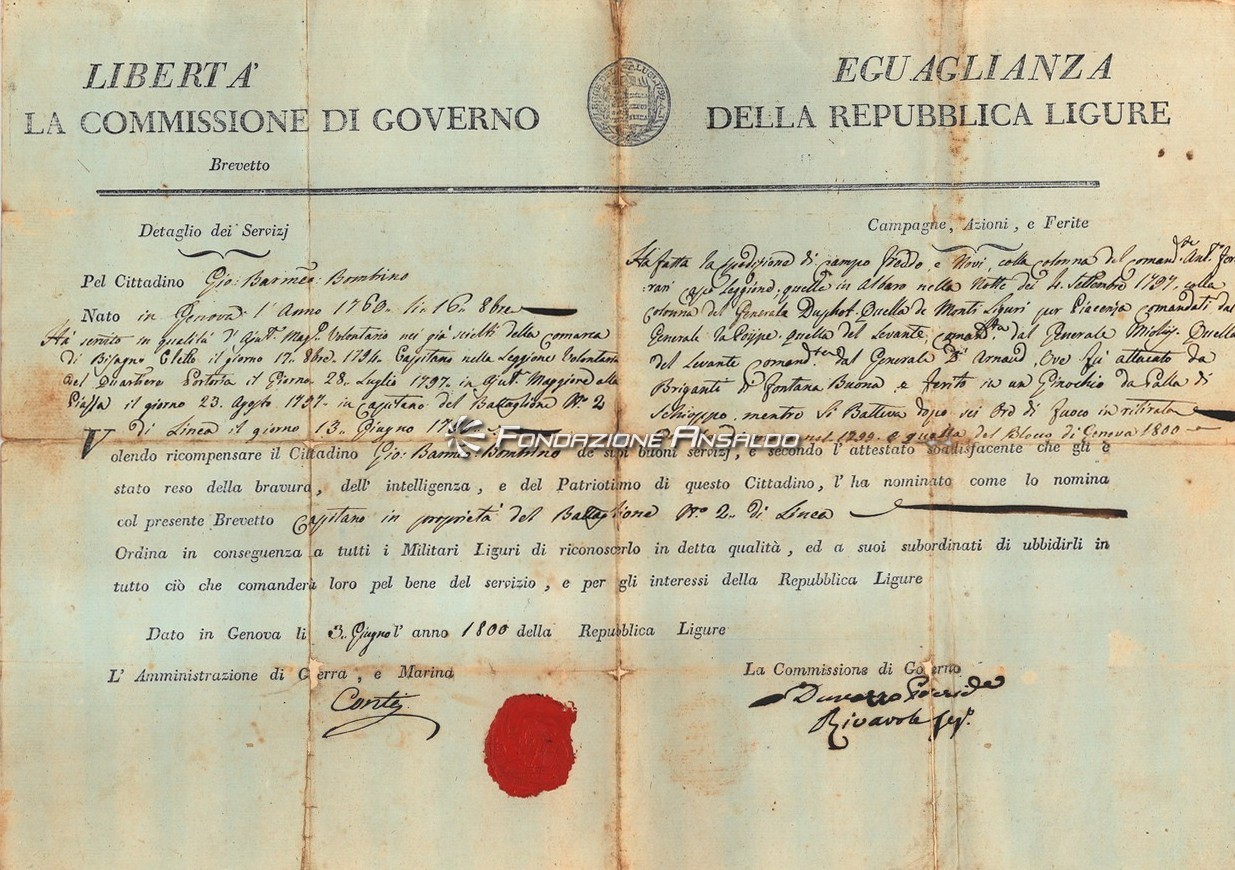 LIBERTA' EGUAGLIANZA
LA COMMISSIONE DI GOVERNO DELLA REPUBBLICA LIGURE
Brevetto
Detaglio dei Servizj
Pel Cittadino Gio: Barmeo: Bombino
Nato in Genova l'Anno 1760 li 16 8bre
Ha servito in qualità d'Ajut. Magr. Volontario nei già scielti della comarca
di Bisagno Eletto il giorno 17 8bre. 1794. Capitano nella Leggione Volontaria
del Quartiere Portoria il Giorno 28 Luglio 1797 in Ajut. Maggiore alla
Piassa il giorno 23. Agosto 1797 in Capitano del Battaglione No. 2
di Linea il giorno 13 Giugno
Campagne, Azioni, e Ferite
Ha fatta la spedizione di Campo Freddo, e Novi, colla colonna del comandte. Ant.
quella in Albaro nella Notte dei 4. Settembre 1797. colla
colonna del Generale Duphot. Quella de Monti Liguri pur Piacenza comandati dal
Generale la Poippe. quella del Levante, comandta dal Generale Miollis. Quella
del Levante comandte. dal Generale D'Arnaud, Ove fù attaccato da
Briganti di Fontana Buona e ferito in un Ginochio da Palla di
Schioppo. mentre si Batteva dopo sei Ord di fuoco in ritirata
nel 1799. e quella del Blocco di Genova 1800
FONDAZIONE ANSALDO
Volendo ricompensare il Cittadino Gio: Barmeo: Bombino de suoi buoni servizj, e secondo l'attestato soddisfacente che gli è
stato reso della bravura, dell' intelligenza, e del Patriotimo di questo Cittadino, l'ha nominato come lo nomina
col presente Brevetto Capitano in proprietà del Battaglione No. 2 di Linea
Ordina in conseguenza a tutti i Militari Liguri di riconoscerlo in detta qualità, ed a suoi subordinati di ubbidirli in
tutto ciò che comanderà loro pel bene del servizio, e per gli interessi della Repubblica Ligure
Dato in Genova li 3 Giugno l'anno 1800 della Repubblica Ligure
L' Amministrazione di Guerra, e Marina
La Commissione di Governo